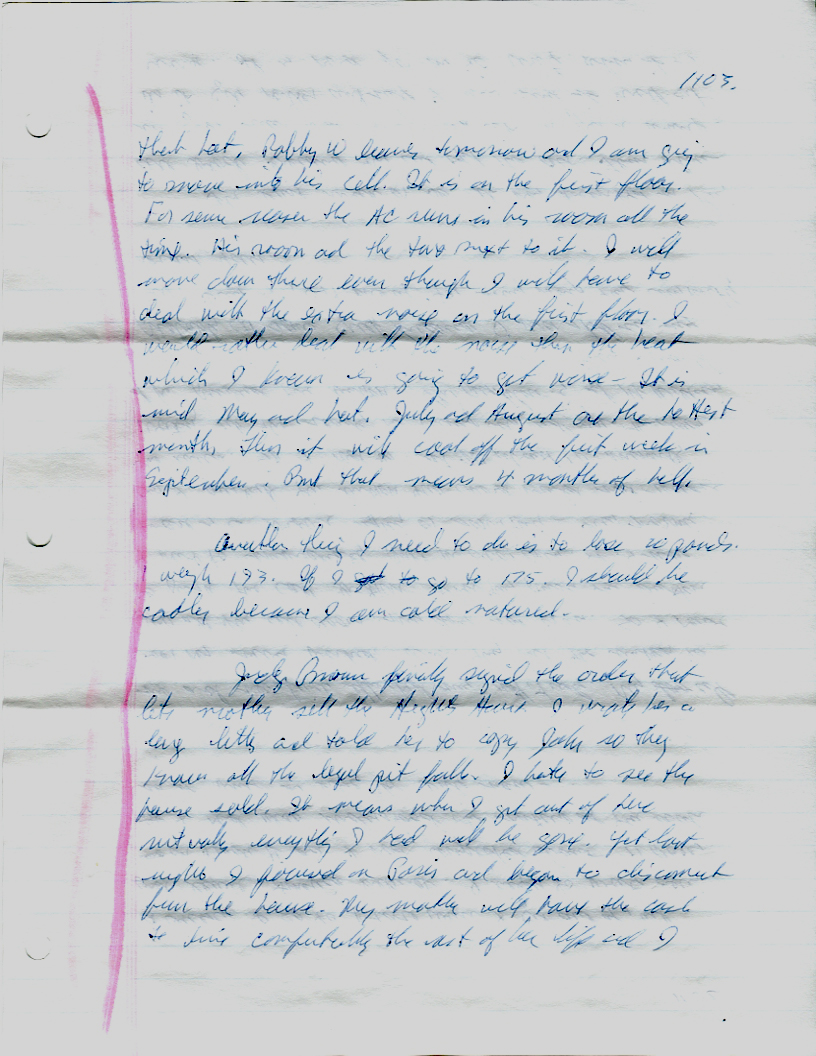 1103.
that hot, Bobby W leaves tomorrow and I am going
to move into his cell. It is on the first floor.
For some reason the AC runs in his room all the
time. His room ad the two next to it. I will
move down there even though I will have to
deal with the extra noise on the first floor. I
would rather deal with the noise than the heat
which I know is going to get worse. It is
mid May ad hot. July ad August are the hottest
months. Then it will cool off the first week in
September. But that means 4 months of hell.
Another thing I need to do is to lose pounds.
I weigh 193. If I get to go to 175. I should be
cooler because I am cold natured.
Judge Brown finally signed the order that
lets mother sell the Heights House. I wrote her a
long letter ad told her to copy John so they
know all the legal pit falls. I hate to see the
house sold. It means when I get out of here
virtually everything I had will be gone. Yet last
night I focused on Paris ad began to disconnect
from the house. My mother will have the cash
to live comfortably the rest of her life ad I